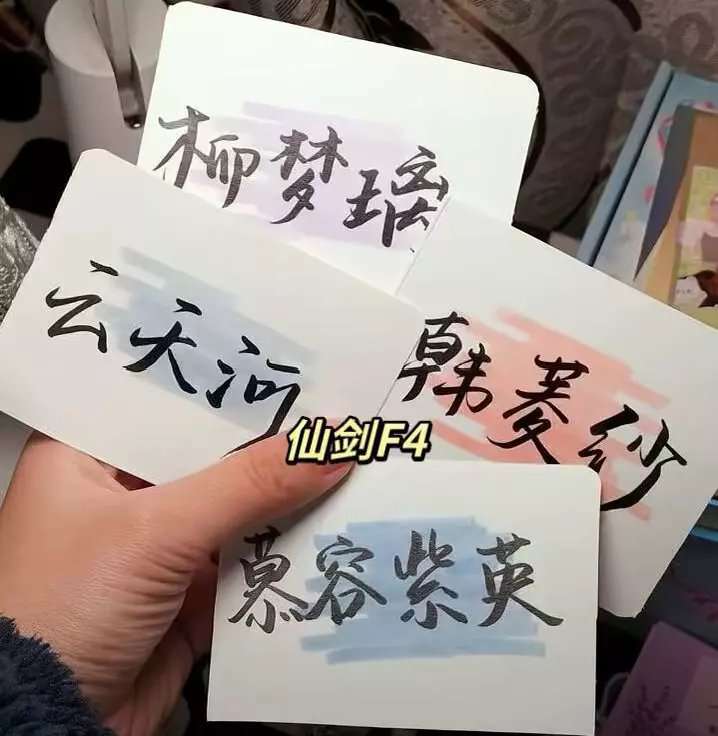 柳梦璃
云天河
韩菱纱
仙剑F4
慕容紫英